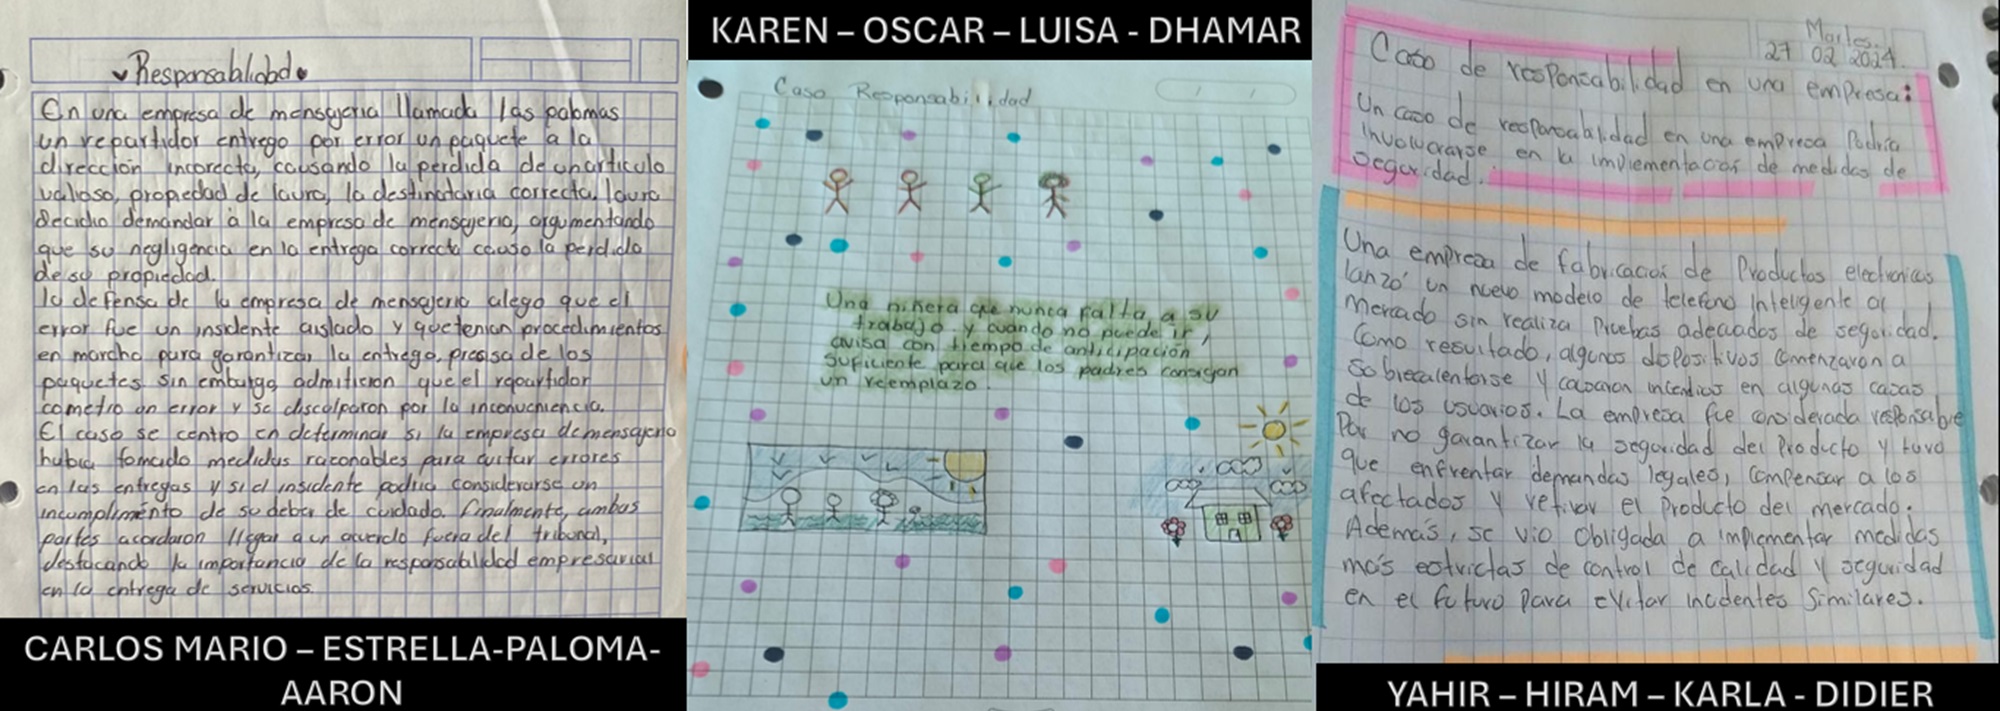 Responsabilidad
En una empresa de mensajeria llamada las palomas
un repartidor entrego por error un paquete a la
dirección incorecta, causando la perdida de un articulo
valioso, propiedad de laura, la destinataria correcta. laura
decidio demandar a la empresa de mensajeria, argumentando
que su negligencia en la entrega correcta causo la perdida
de su propiedad.
la defensa de la empresa de mensajeria alego que el
error fue un insidente aislado y que tenian procedimientos
en marcha para garantizar la entrega precisa de los
paquetes sin embargo, admitieron que el repartidor
cometio un error y se disculparon por la inconveniencia.
El caso se centro en determinar si la empresa de mensajeria
habia tomado medidas razonables para evitar errores
en las entregas y si el insidente podria considerarse un
incumplimento de su deber de cuidado. Finalmente, ambas
partes acordaron llegar a un acuerdo fuera del tribunal,
destacando la importancia de la responsabilidad empresarial
en la entrega de servicios.
CARLOS MARIO – ESTRELLA-PALOMA-
AARON
KAREN – OSCAR – LUISA - DHAMAR
Caso Responsabilidad
Una niñera que nunca falta a su
trabajo y cuando no puede ir,
avisa con tiempo de anticipación
suficiente para que los padres consigan
un reemplazo.
Martes
27 02 2024.
Caso de responsabilidad en una empresa:
Un caso de responsabilidad en una empresa Podría
Involucrarse en la implementación de medidas de
seguridad.
Una empresa de fabricación de Productos electronicos
lanzó un nuevo modelo de telefono Inteligente al
Mercado sin realiza Pruebas adecuados de seguridad.
Como resultado, algunos dispositivos comenzaron a
Sobrecalentarse y causaron incendios en algunas casas
de los usuarios. La empresa fue considerada responsable
Por no garantizar la seguridad del Producto y tuvo
que enfrentar demandas legales, compensar a los
afectados y retirar el Producto del mercado.
Además, se vio Obligada a implementar medidas
más estrictas de control de calidad y seguridad
en el futuro para evitar incidentes Similares.
YAHIR – HIRAM – KARLA - DIDIER